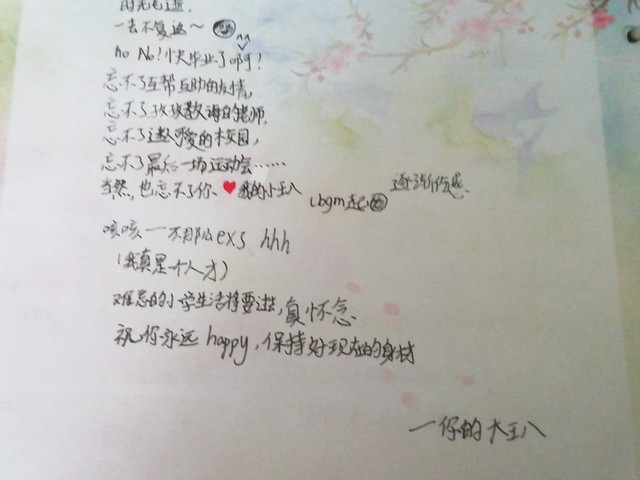 时光飞逝，
一去不复返~
no No！快毕业了啊！^^
忘不了互帮互助的友情，
忘不了孜孜教诲的老师，
忘不了这可爱的校园，
忘不了最后一场运动会……
当然，也忘不了你、❤我的小王八 （bgm起 逐渐伤感
咳咳一不那么exs hhh
（我真是个人才）
难忘的小学生活将要过去，真怀念
祝你永远happy，保持好现在的身材
一你的大王八